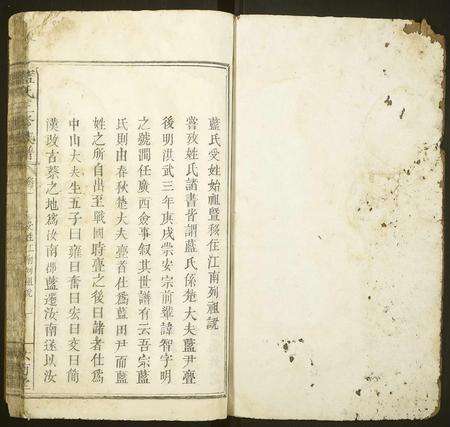 藍氏受姓始祖暨移住江南列祖説
嘗攷姓氏諸書皆謂藍氏係楚大夫藍尹亹
後明洪武三年庚戌崇安宗前輩諱智字明
之號澗任廣西僉事敍其世譜有云吾宗藍
氏則由春秋楚大夫亹者仕為藍田尹而藍
姓之所自出至戰國時亹之後曰諸者仕為
中山大夫生五子曰雍曰奮曰安曰交曰簡
漢改古蔡之地為汝南郡藍遷汝南遂以汝
藍氏